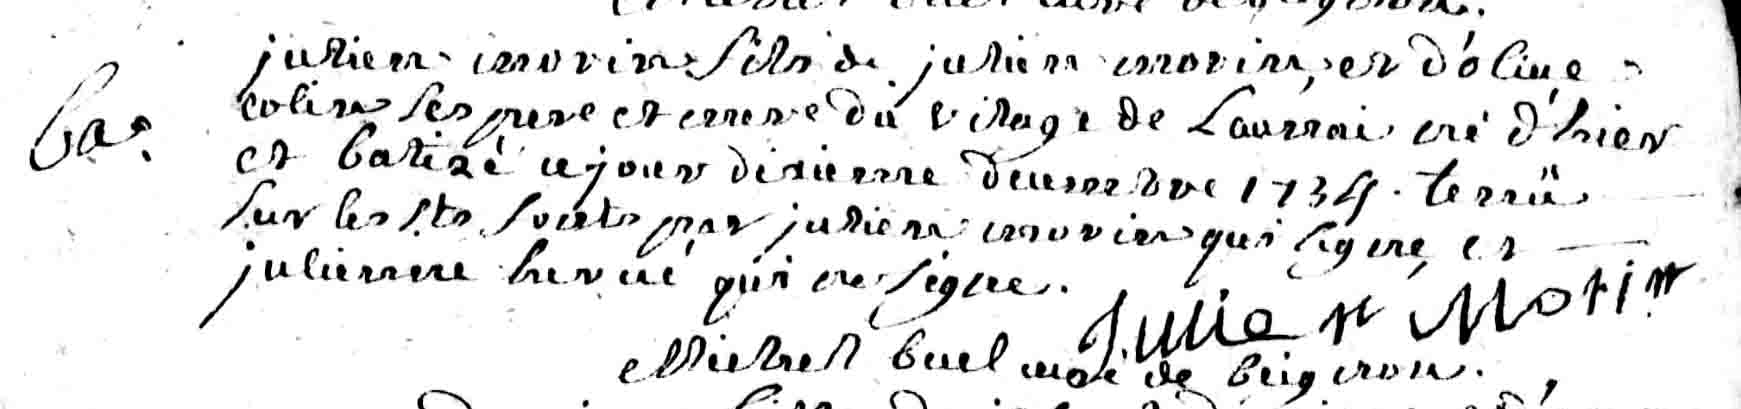 julien morin fils de julien morin, et d'olive
ba. colin ses pere et mere du village de Launai né d'hier
et batizé ce jour dixieme decembre 1734. tenü
sur les sts fonts par julien morin qui signe, et
julienne hervé qui ne signe.
Julien Morin
Michel buel curé de